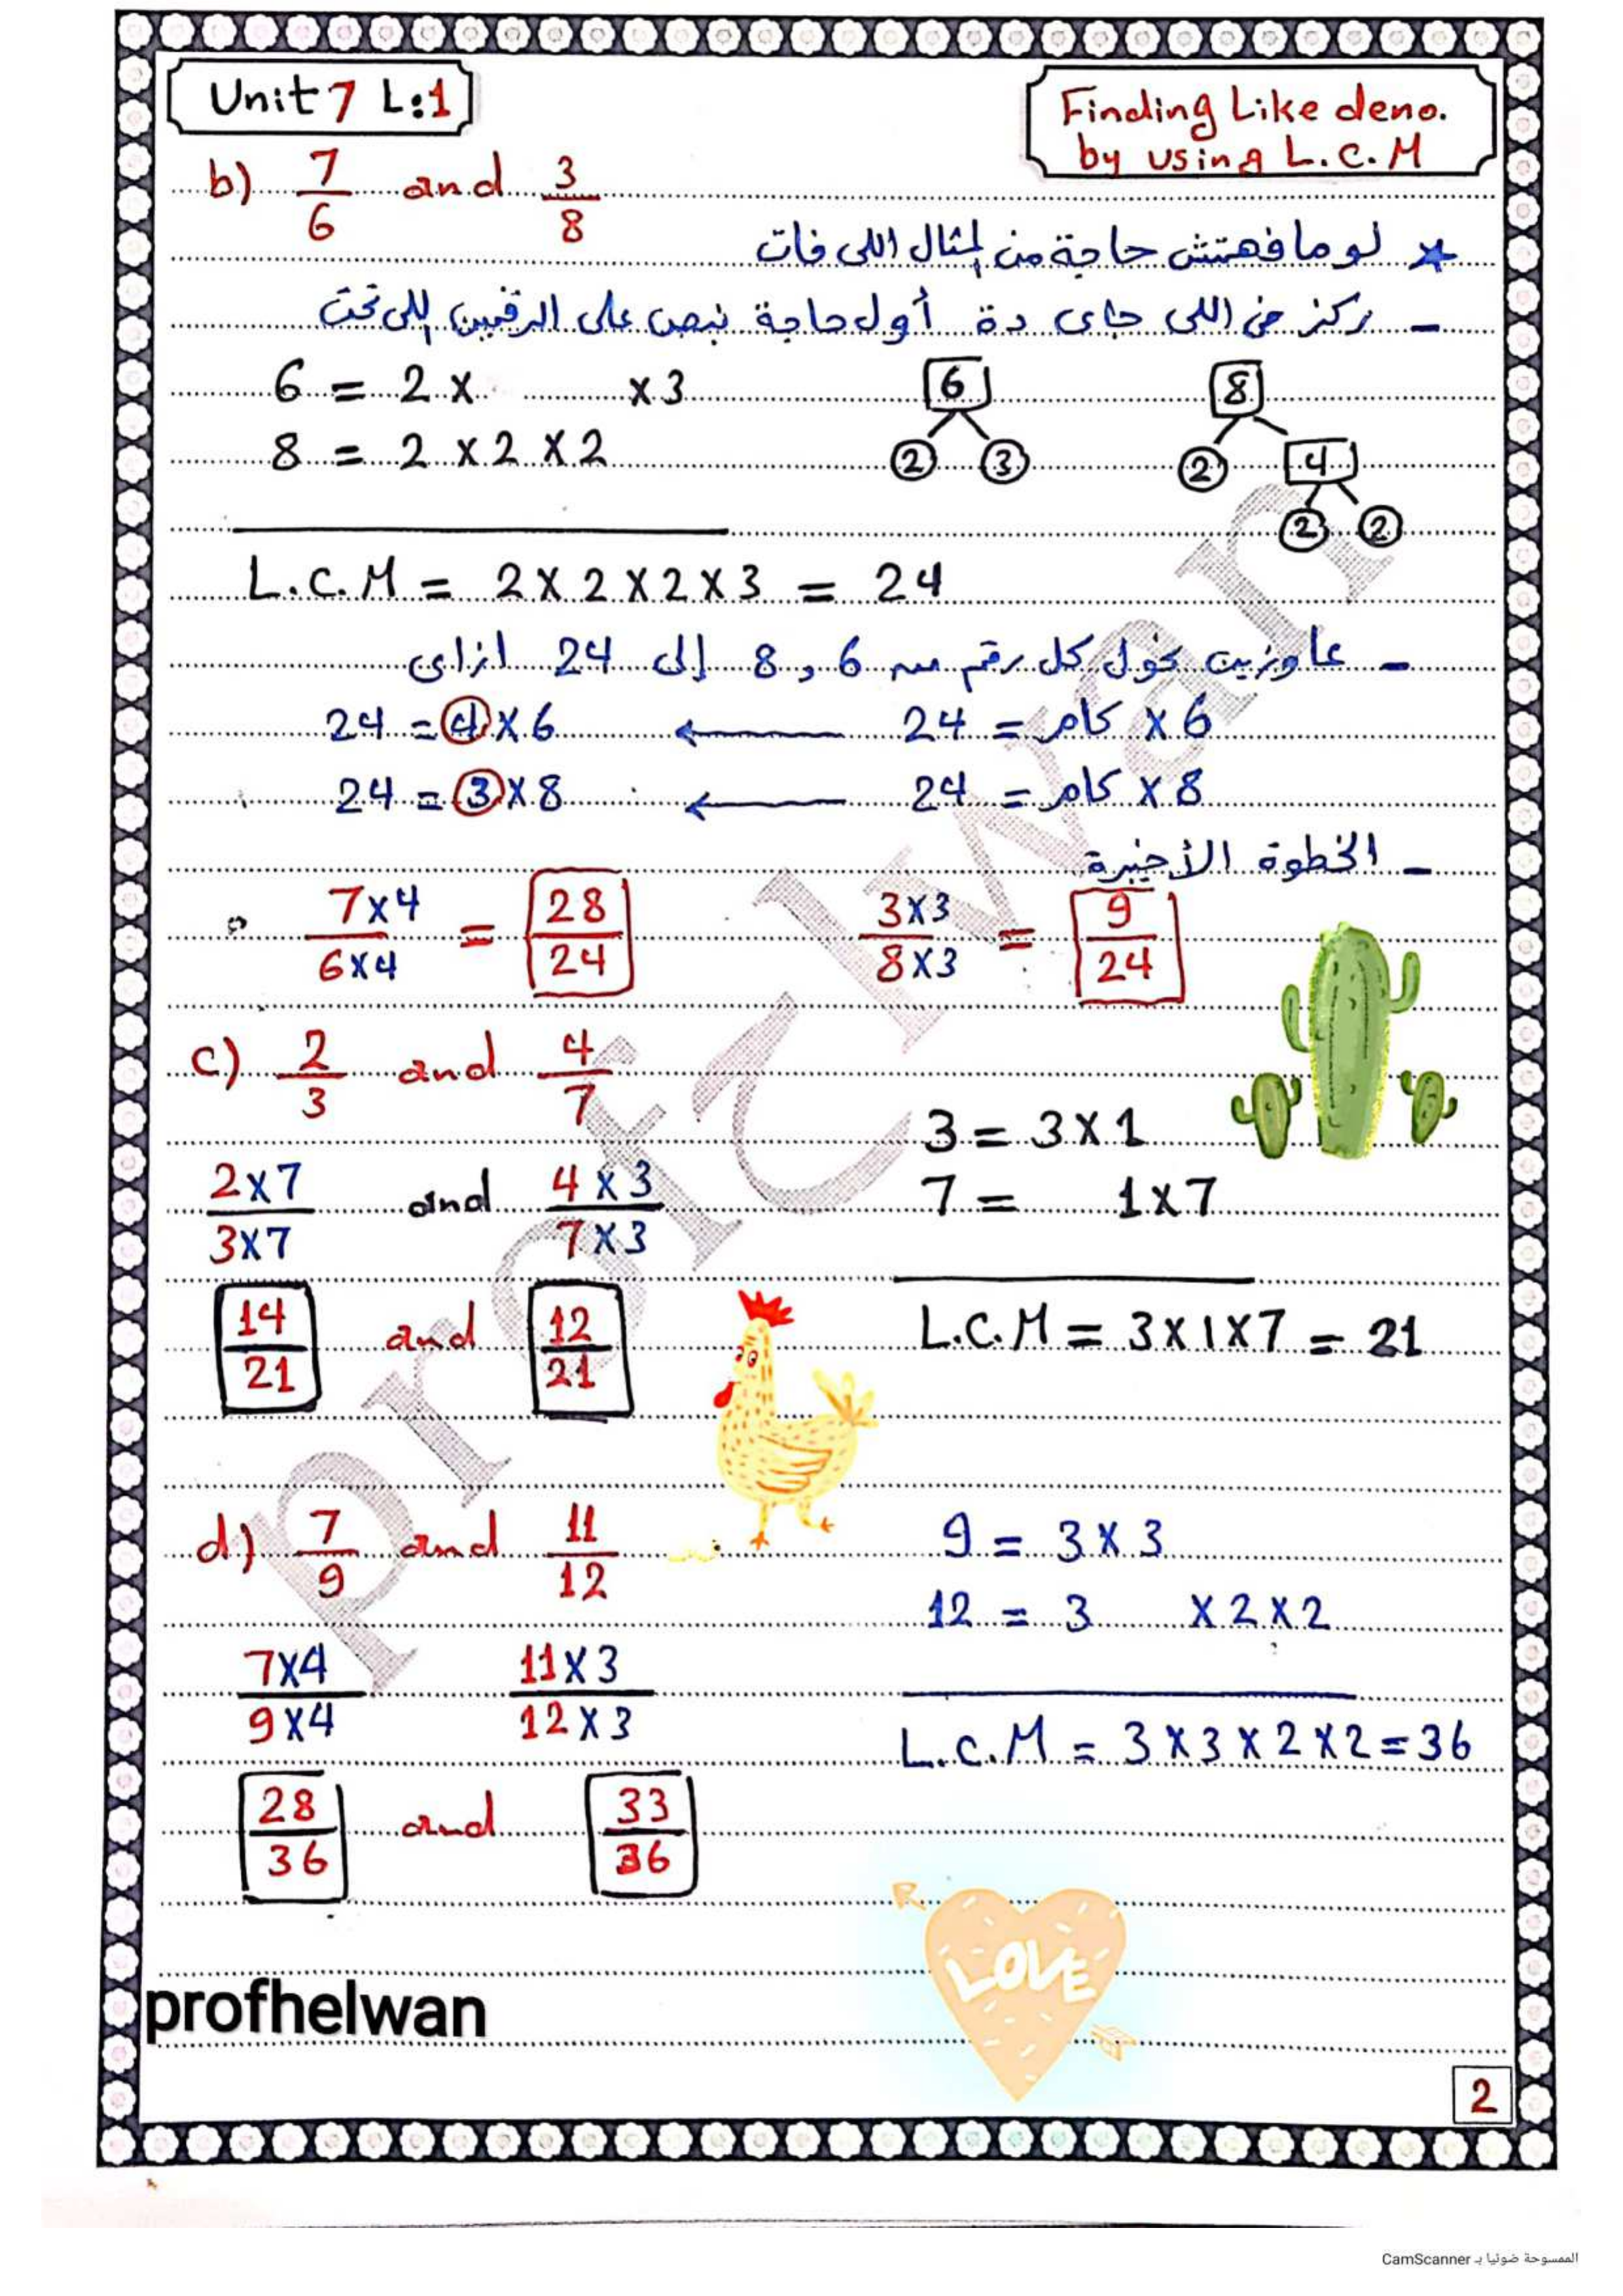 Unit 7 L:1
Finding Like deno.
by using L.C.M
b) 7/6 and 3/8
* لو ما فهمتش حاجة من المثال اللى فات
- ركز فى اللى جاى دة أول حاجة نبص على الرقمين اللى تحت
6 = 2 x x 3
8 = 2 x 2 x 2
6
2 3
8
2 4
2 2
L.C.M = 2 x 2 x 2 x 3 = 24
- عاوزين نحول كل رقم من 6 , 8 إلى 24 ازاى
6 x كام = 24 ← 6 x 4 = 24
8 x كام = 24 ← 8 x 3 = 24
- الخطوة الأخيرة
7x4/6x4 = 28/24 3x3/8x3 = 9/24
c) 2/3 and 4/7
3 = 3 x 1
7 = 1 x 7
2x7/3x7 and 4x3/7x3
L.C.M = 3 x 1 x 7 = 21
14/21 and 12/21
d) 7/9 and 11/12
9 = 3 x 3
12 = 3 x 2 x 2
7x4/9x4 11x3/12x3
L.C.M = 3 x 3 x 2 x 2 = 36
28/36 and 33/36
LOVE
profhelwan
2
profhelwan
الممسوحة ضوئيا بـ CamScanner